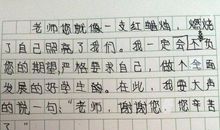 老师您就像一支红蜡烛，燃烧
了自己照亮了我们。我一定会不负
您的期望，严格要求自己，做个全面
发展的好学生的。在此，我要大声
的说一句：“老师，谢谢您，您辛苦
了”